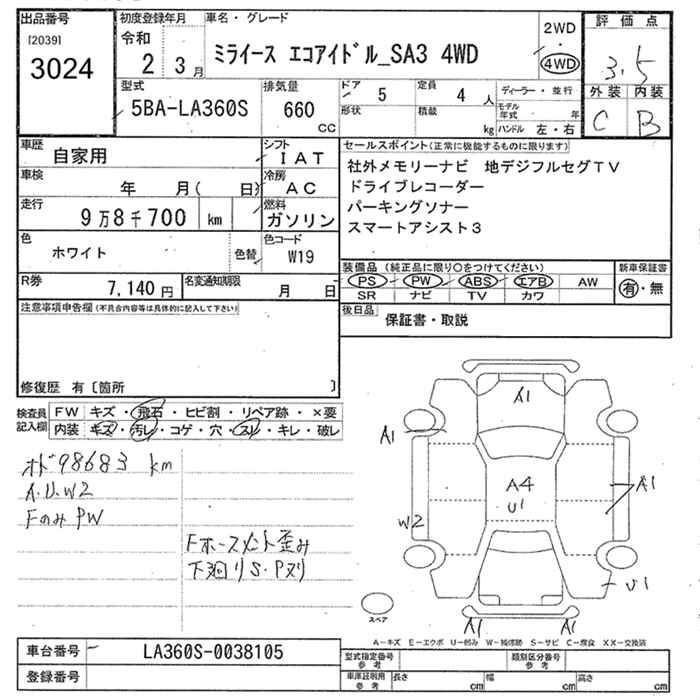 出品番号
[2039]
3024
初度登録年月
令和
2 3月
車名・グレード
ミライース エコアイドル_SA3 4WD
2WD
4WD
評価点
3.5
外装 内装
C B
型式
5BA-LA360S
排気量
660 CC
ドア 5
形状
定員 4 人
積載 kg
ディーラー・並行
モデル年式 年
ハンドル 左・右
車歴
自家用
シフト
IAT
車検
年 月( 日)
冷房
AC
走行
9万8千700 km
燃料
ガソリン
色
ホワイト
色替
色コード
W19
R券
7,140 円
名変通知期限
月 日
セールスポイント(正常に機能するものに限ります)
社外メモリーナビ 地デジフルセグTV
ドライブレコーダー
パーキングソナー
スマートアシスト3
装備品(純正品に限り○をつけてください)
新車保証書
PS PW ABS エアB AW
有・無
SR ナビ TV カワ
後日品
保証書・取説
注意事項申告欄(不具合内容等は具体的に記入して下さい)
修復歴 有〔箇所 〕
検査員記入欄
FW キズ・飛石・ヒビ割・リペア跡・×要
内装 キズ・汚レ・コゲ・穴・スレ・キレ・破レ
オド98683 km
A.U.W2
FのみPW
Fホースメント歪み
下廻りS・Pヌリ
A1
A1
A4
U1
A1
W2
U1
A1 A1
スペア
A-キズ E-エクボ U-凹み W-補修跡 S-サビ C-腐食 XX-交換済
車台番号
LA360S-0038105
登録番号
型式指定番号
参考
類別区分番号
参考
車庫証明用
参考
長さ cm
幅 cm
高さ cm